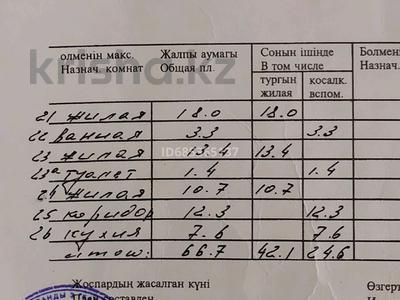 krisha.kz
олменін макс. Жалпы аумагы Сонын ішінде Болмен
Назнач. комнат Общая пл. В том числе Назнач.
тургын косалк.
жилая вспом.
21 жилая 18.0 18.0
22 ванная 3.3 3.3
23 жилая 13.4 13.4
23а туалет 1.4 1.4
24 жилая 10.7 10.7
25 коридор 12.3 12.3
26 кухня 7.6 7.6
итог: 66.7 42.1 24.6
Жоспардын жасалган күні Өзгерт